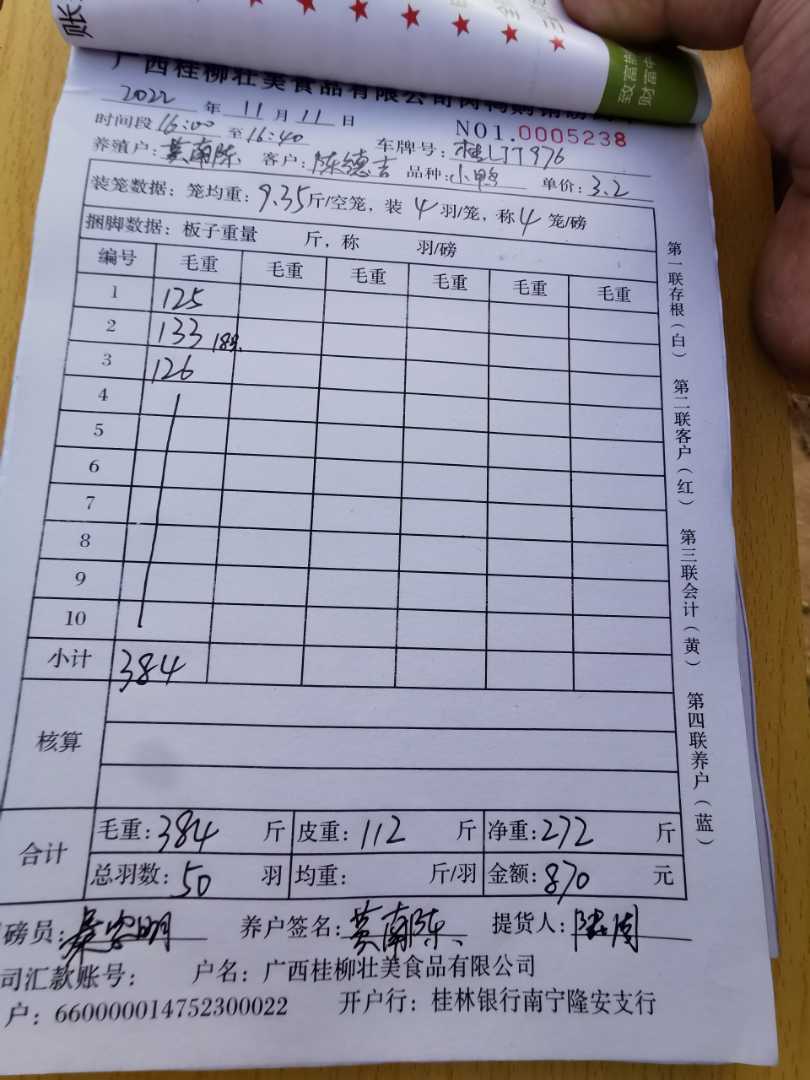 账
广西桂柳壮美食品有限公司
2022 年 11 月 11 日
NO1.0005238
时间段 16:00 至 16:40
车牌号:
养殖户: 莫南陈 客户: 陈德吉 品种: 小鸭 单价: 3.2
装笼数据: 笼均重: 9.35 斤/空笼, 装 4 羽/笼, 称 4 笼/磅
捆脚数据: 板子重量 斤, 称 羽/磅
编号 毛重 毛重 毛重 毛重 毛重 毛重
1 125
2 133 18羽.
3 126
4
5
6
7
8
9
10
小计 384
核算
合计 毛重: 384 斤 皮重: 112 斤 净重: 272 斤
总羽数: 50 羽 均重: 斤/羽 金额: 870 元
磅员: 养户签名: 莫南陈、 提货人:
司汇款账号: 户名: 广西桂柳壮美食品有限公司
户: 660000014752300022 开户行: 桂林银行南宁隆安支行
第一联存根(白) 第二联客户(红) 第三联会计(黄) 第四联养户(蓝)